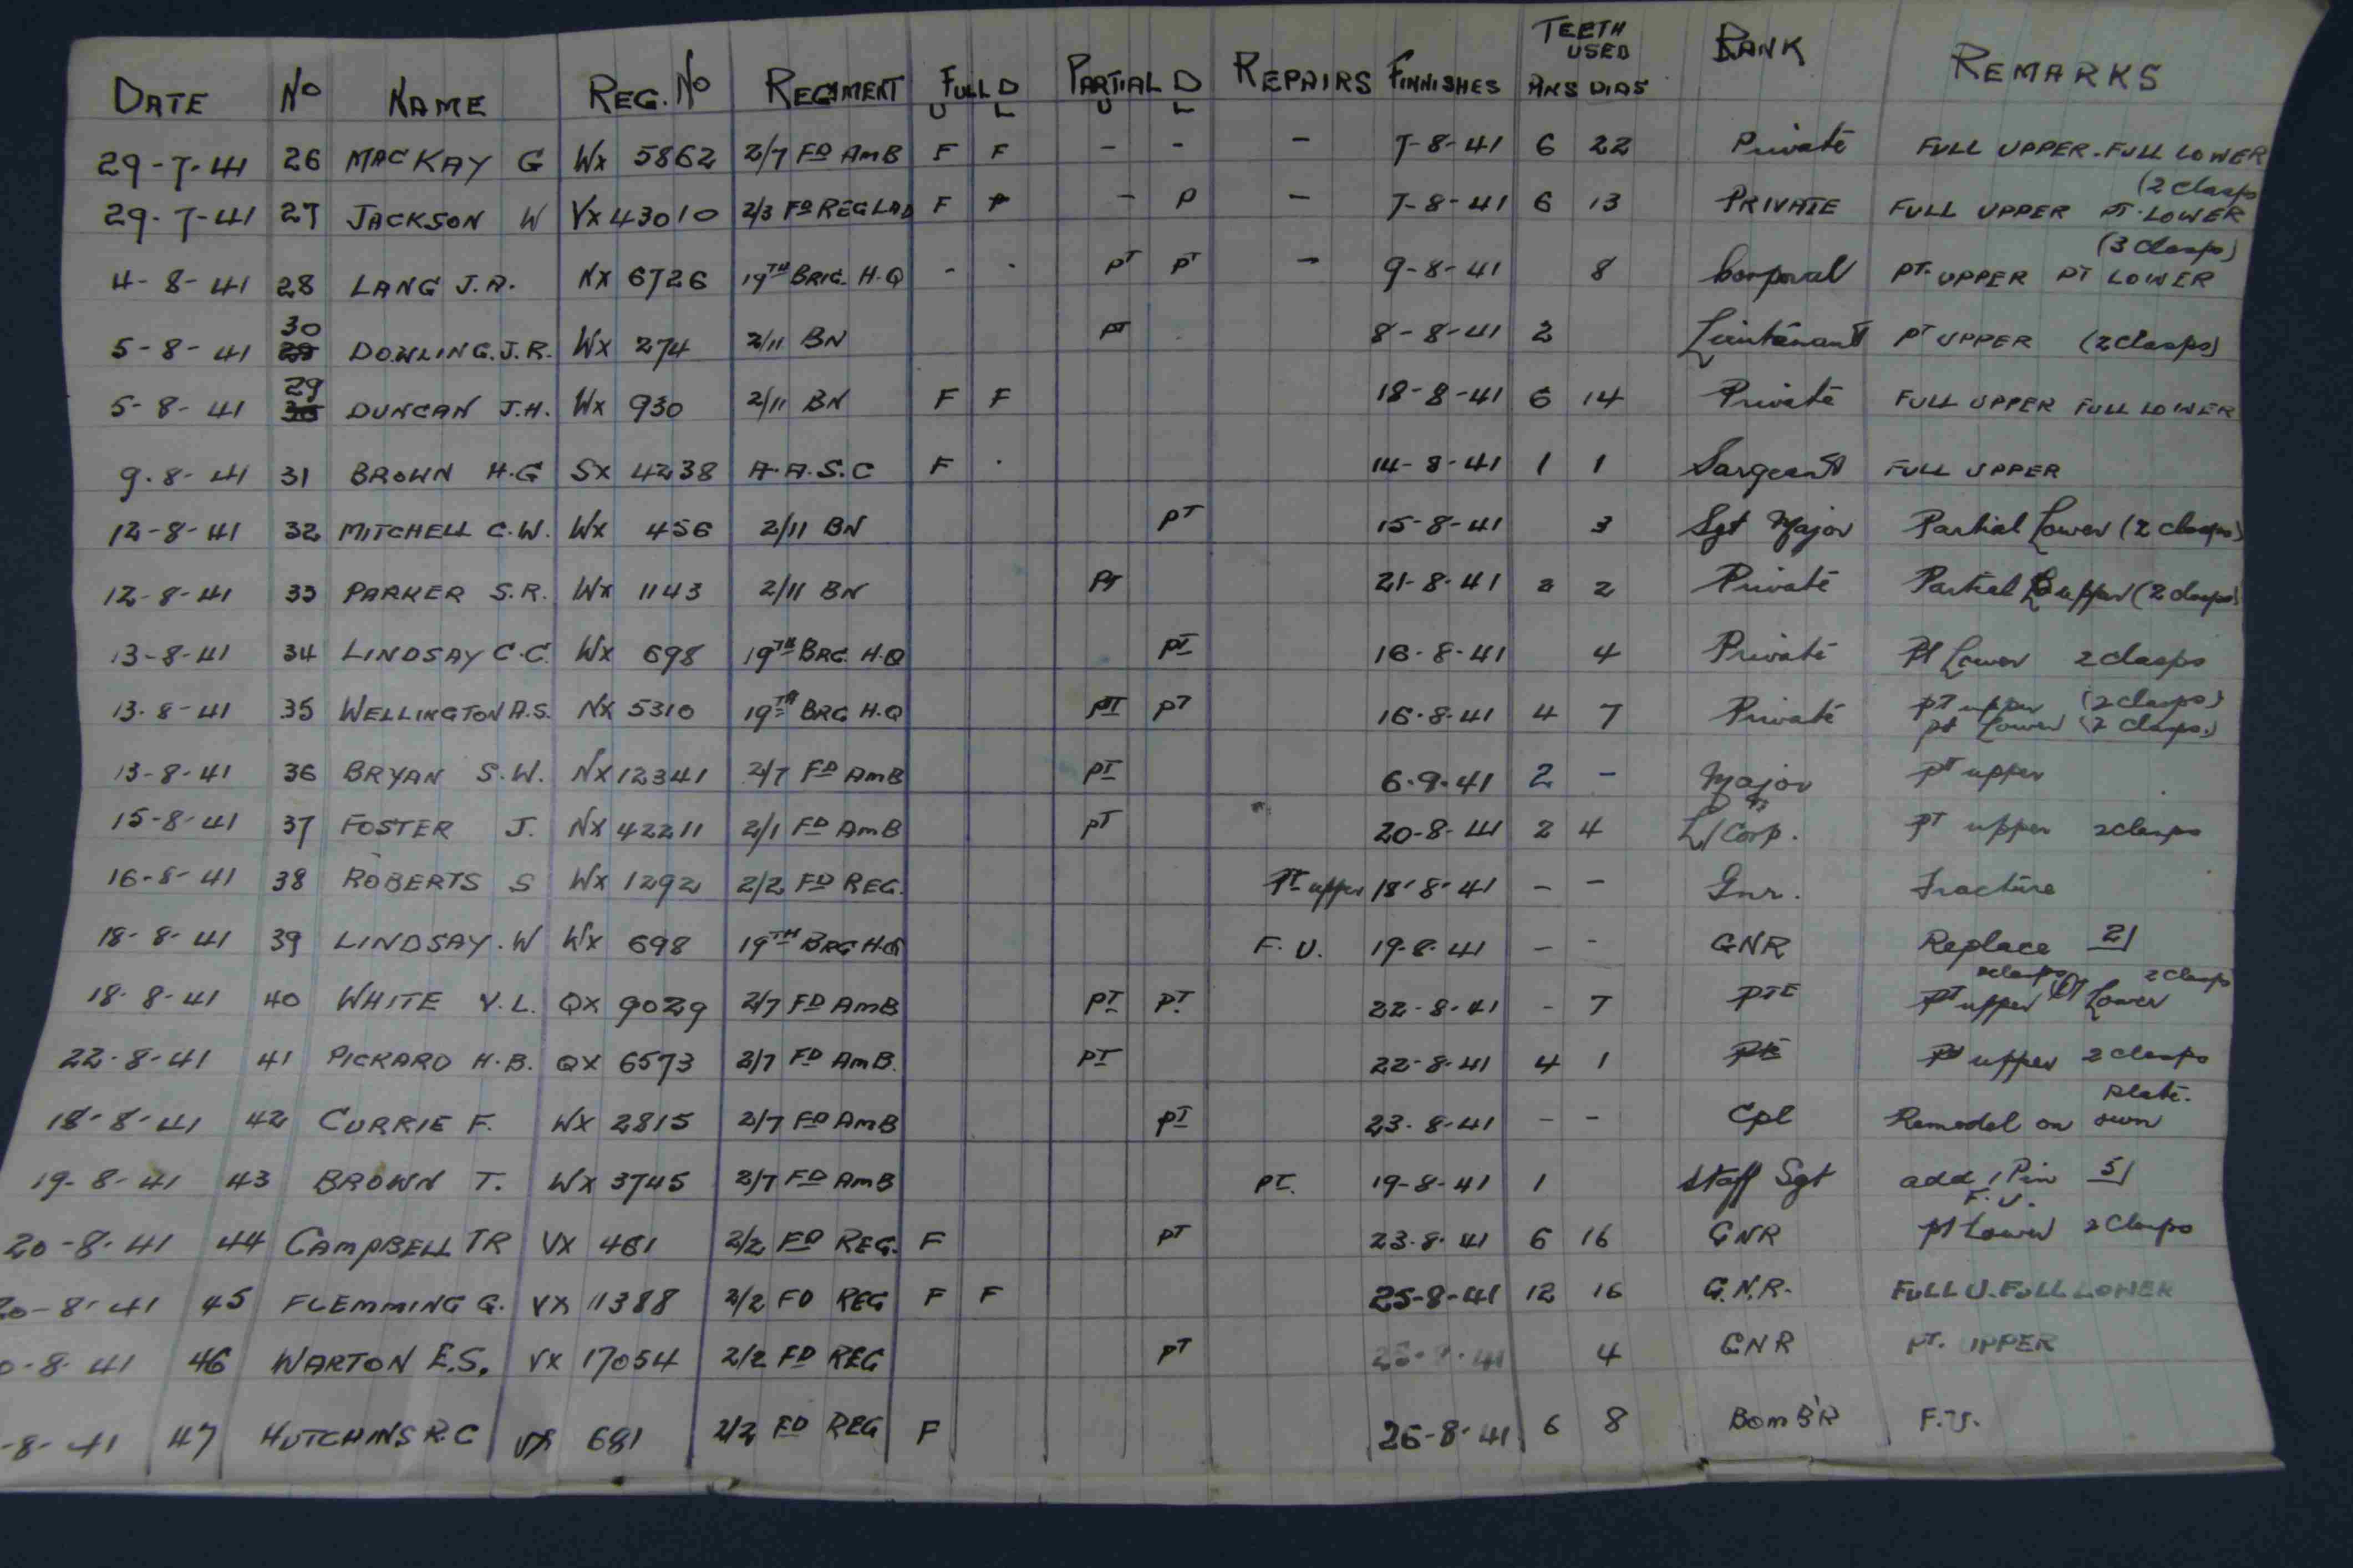 DATE No NAME REG. No REGIMENT FULL D U L PARTIAL D U L REPAIRS FINNISHES TEETH USED ANS DIAS RANK REMARKS
29-7-41 26 MACKAY G WX 5862 2/7 FD AMB F F - - - 7-8-41 6 22 Private FULL UPPER-FULL LOWER
29-7-41 27 JACKSON W VX 43010 2/3 FD REG LAD F - P - 7-8-41 6 13 PRIVATE FULL UPPER PT. LOWER (2 clasps
4-8-41 28 LANG J.A. NX 6726 19TH BRIG. H.Q - - PT PT - 9-8-41 8 Corporal PT. UPPER PT LOWER (3 clasps)
5-8-41 30 DOWLING. J.R. WX 274 2/11 BN PT 8-8-41 2 Lieutenant PT UPPER (2 clasps)
5-8-41 29 DUNCAN J.H. WX 930 2/11 BN F F 18-8-41 6 14 Private FULL UPPER FULL LOWER
9-8-41 31 BROWN H.G SX 4238 A.A.S.C F . 14-8-41 1 1 Sargeant FULL UPPER
12-8-41 32 MITCHELL C.W. WX 456 2/11 BN PT 15-8-41 3 Sgt Major Partial Lower (2 clasps)
12-8-41 33 PARKER S.R. WX 1143 2/11 BN PT 21-8-41 2 2 Private Partial upper (2 clasps)
13-8-41 34 LINDSAY C.C. WX 698 19TH BRG. H.Q PT 16-8-41 4 Private Pt Lower 2 clasps
13-8-41 35 WELLINGTON A.S. NX 5310 19TH BRG H.Q PT PT 16-8-41 4 7 Private pt upper (2 clasps) pt Lower (2 clasps.)
13-8-41 36 BRYAN S.W. NX 12341 2/7 FD AMB PT 6-9-41 2 - Major pt upper
15-8-41 37 FOSTER J. NX 42211 2/1 FD AMB PT 20-8-41 2 4 L/Corp. PT upper 2 clasps
16-8-41 38 ROBERTS S WX 1292 2/2 FD REG. PT upper 18-8-41 - - Gnr. Fracture
18-8-41 39 LINDSAY. W WX 698 19TH BRG H.Q F.U. 19-8-41 - - GNR Replace 2|
18-8-41 40 WHITE V.L. QX 9029 2/7 FD AMB PT PT. 22-8-41 - 7 PTE PT upper 2 clasps PT Lower 2 clasps
22-8-41 41 PICKARD H.B. QX 6573 2/7 FD AMB. PT 22-8-41 4 1 PTE Pt upper 2 clasps
18-8-41 42 CURRIE F. WX 2815 2/7 FD AMB PT 23-8-41 - - Cpl Remodel on own plate.
19-8-41 43 BROWN T. WX 3745 2/7 FD AMB PT. 19-8-41 1 Staff Sgt add 1 Pin 5|
20-8-41 44 CAMPBELL TR VX 461 2/2 FD REG. F PT 23-8-41 6 16 GNR F.U. pt Lower 2 Clasps
20-8-41 45 FLEMMING G. VX 11388 2/2 FD REG F F 25-8-41 12 16 G.N.R. FULL U. FULL LOWER
0-8-41 46 WARTON E.S. VX 17054 2/2 FD REG PT 4 GNR PT. UPPER
-8-41 47 HUTCHINS R.C VX 681 2/2 FD REG F 26-8-41 6 8 BOMB'R F.U.